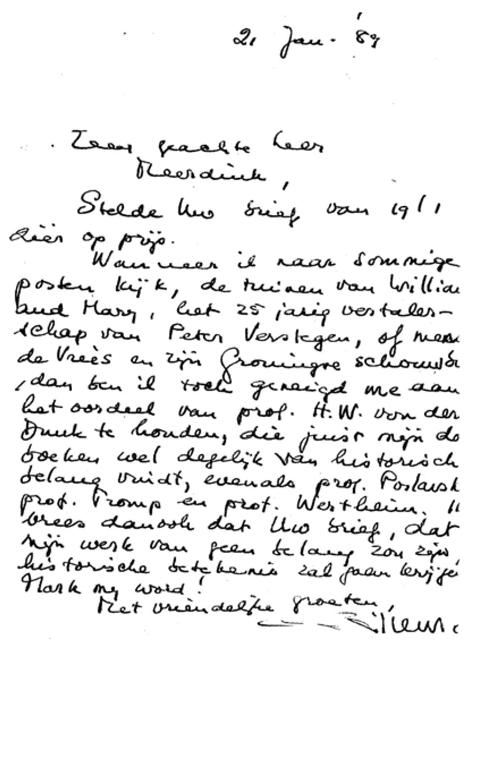 21 Jan. '89
Zeer geachte heer
Meerdink,
Stelde Uw brief van 19/1
zéér op prijs.
Wanneer ik naar sommige
posten kijk, de tuinen van William
and Mary, het 25 jarig vertaler-
schap van Peter Verstegen, of
de Vries en zijn Groningse
, dan ben ik toch geneigd me aan
het oordeel van prof. H.W. von der
Dunk te houden, die juist mijn
boeken wel degelijk van historisch
belang vindt, evenals prof.
prof. Tromp en prof. Wertheim.
vrees dan ook dat Uw brief, dat
mijn werk van geen belang zou zijn,
historische betekenis zal gaan
Mark my word!
Met vriendelijke groeten,